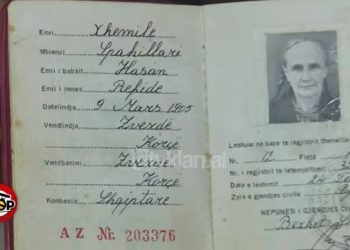 Emri Xhemile
Mbiemri Spahillari
Emri i babait Hasan
Emri i nenes Refide
Datelindja 9 Mars 1905
Vendlindja Zvezdë
Korçë
Vendbanimi Zvezdë
Korçë
Kombesia Shqiptare
AZ Nr. 203376
Leshuar ne baze te regjistrit themeltar
Nr. 12 Fleta
Nr. i regjistrit te
Data e leshimit 24
Zyra e gjendjes civile
NEPUNESI I GJENDJES